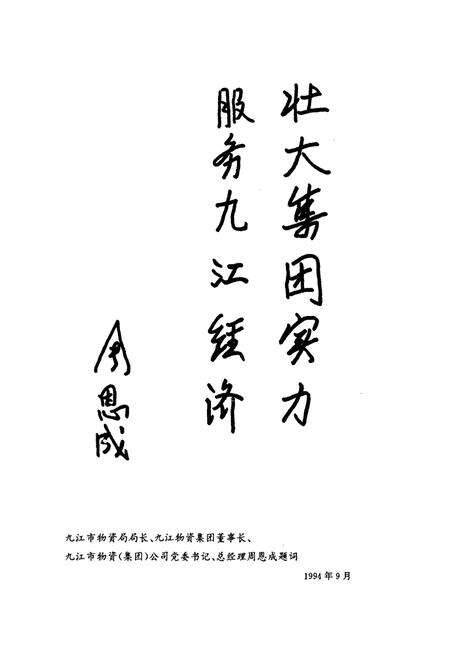 壮大集团实力
服务九江经济
周恩成
九江市物资局局长、九江物资集团董事长、
九江市物资(集团)公司党委书记、总经理周恩成题词
1994年9月